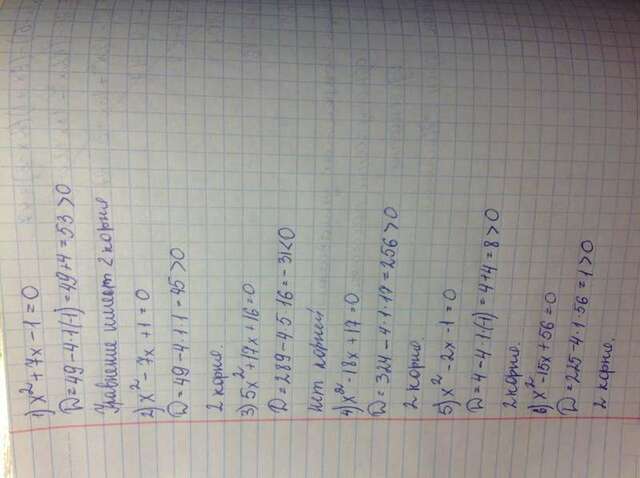 1) x² + 7x - 1 = 0
D = 49 - 4·1(-1) = 49 + 4 = 53 > 0
Уравнение имеет 2 корня
2) x² - 7x + 1 = 0
D = 49 - 4·1·1 = 45 > 0
2 корня.
3) 5x² + 17x + 16 = 0
D = 289 - 4·5·16 = -31 < 0
Нет корней
4) x² - 18x + 17 = 0
D = 324 - 4·1·17 = 256 > 0
2 корня.
5) x² - 2x - 1 = 0
D = 4 - 4·1(-1) = 4 + 4 = 8 > 0
2 корня.
6) x² - 15x + 56 = 0
D = 225 - 4·1·56 = 1 > 0
2 корня.